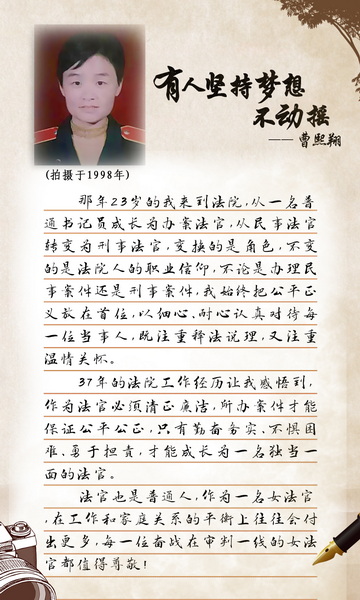 有人坚持梦想
不动摇
——曹熙翔
(拍摄于1998年)
那年23岁的我来到法院,从一名普
通书记员成长为办案法官,从民事法官
转变为刑事法官,变换的是角色,不变
的是法院人的职业信仰,不论是办理民
事案件还是刑事案件,我始终把公平正
义放在首位,以细心、耐心认真对待每
一位当事人,既注重释法说理,又注重
温情关怀。
37年的法院工作经历让我感悟到,
作为法官必须清正廉洁,所办案件才能
保证公平公正,只有勤奋务实、不惧困
难、勇于担责,才能成长为一名独当一
面的法官。
法官也是普通人,作为一名女法官
,在工作和家庭关系的平衡上往往会付
出更多,每一位奋战在审判一线的女法
官都值得尊敬!